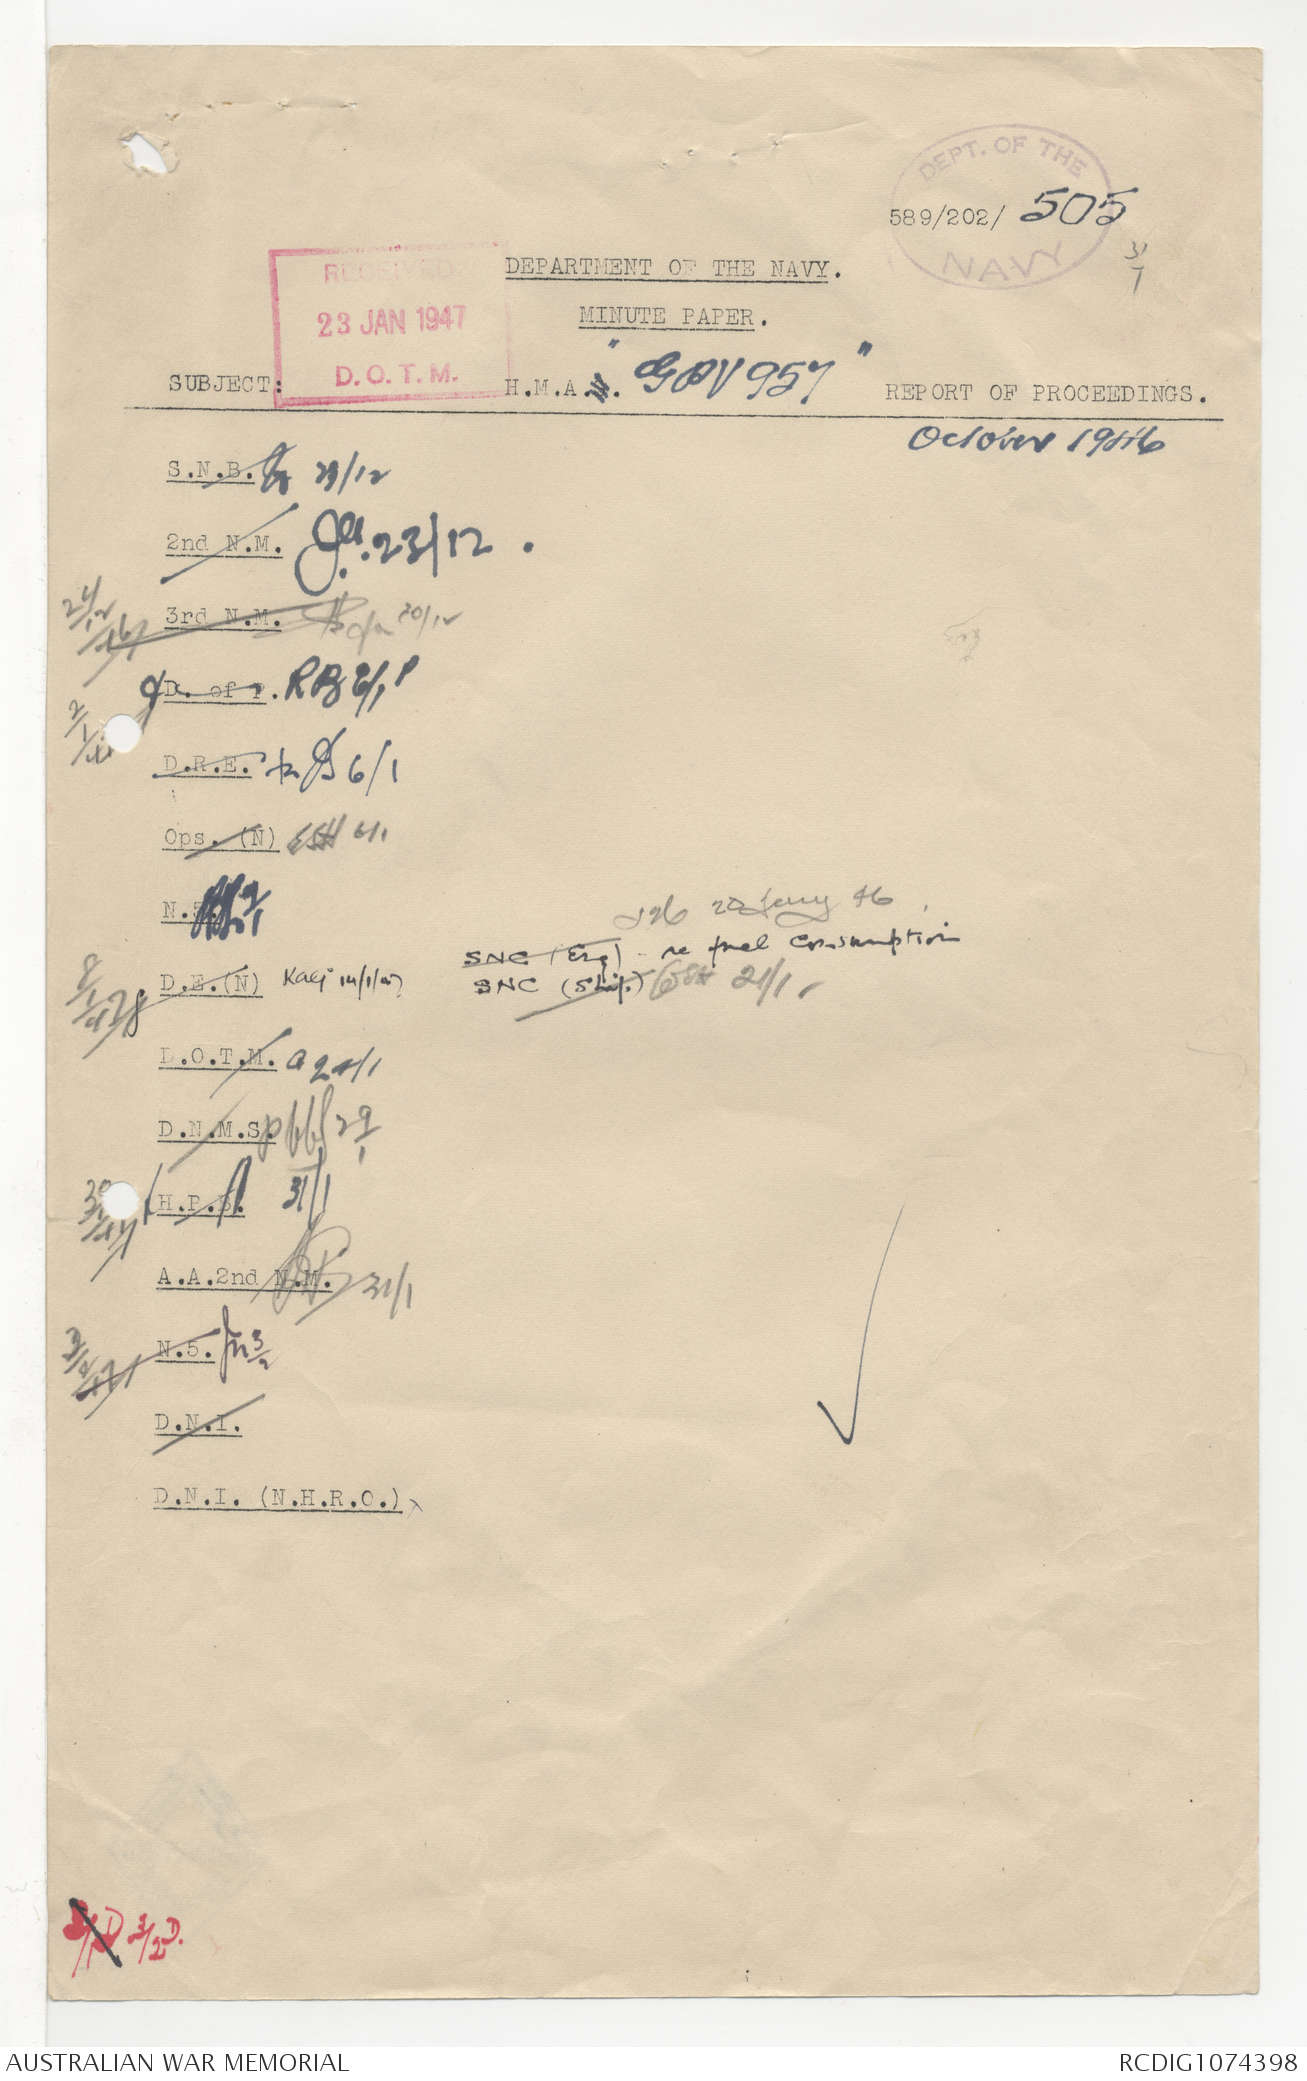 DEPT. OF THE
NAVY
589/202/ 505
31/7
RECEIVED
23 JAN 1947
D.O.T.M.
DEPARTMENT OF THE NAVY.
MINUTE PAPER.
SUBJECT: H.M.A. "GPV 957" REPORT OF PROCEEDINGS.
October 1946
S.N.B. 23/12
2nd N.M. 23/12.
3rd N.M. 20/12
D. of P. 6/1
D.R.E. 6/1
Ops. (N) 6/1
N.5. 9/1
20 Jany 46
SNC (Eng) - re fuel consumption
D.E.(N) 14/1/47 SNC (Ship.) 21/1
D.O.T.M. 24/1
D.N.M.S. 29/1
H.P.B. 31/1
A.A.2nd N.M. 31/1
N.5. 3/2
D.N.I.
D.N.I. (N.H.R.O.)
3/2 D.
AUSTRALIAN WAR MEMORIAL RCDIG1074398